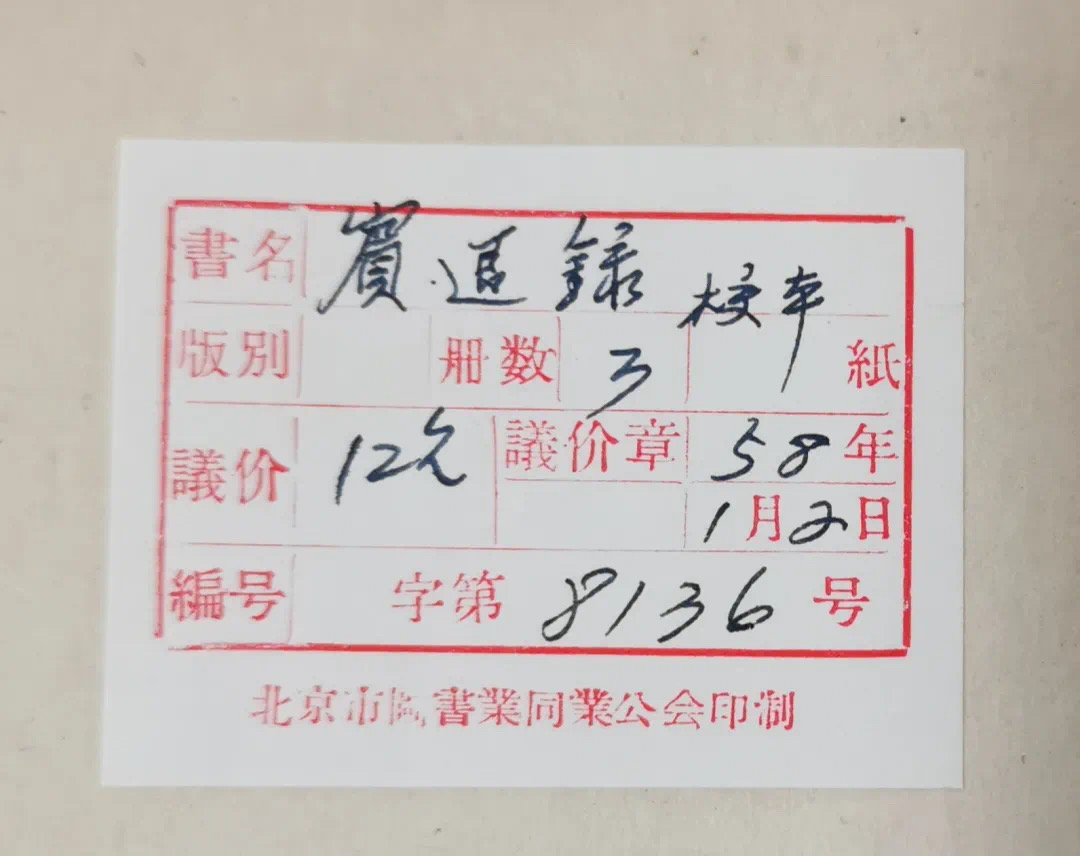 書名 賓退録 校本
版別 冊数 3 紙
議价 12元 議价章 58年
1月2日
編号 字第 8136 号
北京市圖書業同業公会印制